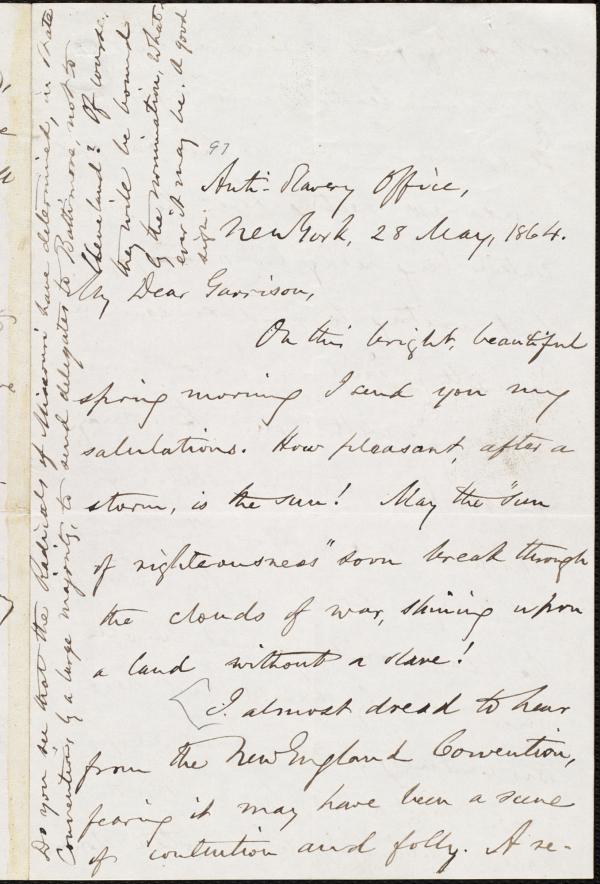 97
Anti-Slavery Office,
New York, 28 May, 1864.
My Dear Garrison,
On this bright, beautiful
spring morning I send you my
salutations. How pleasant, after a
storm, is the sun! May the "sun
of righteousness" soon break through
the clouds of war, shining upon
a land without a slave!
I almost dread to hear
from the New England Convention,
fearing it may have been a scene
of contention and folly. A re-
Do you see that the Radicals of Missouri have determined, in State
Convention, by a large majority, to send delegates to Baltimore, not to
Cleveland? Of course
they will be bound
by the nomination, what-
ever it may be. A good
sign.